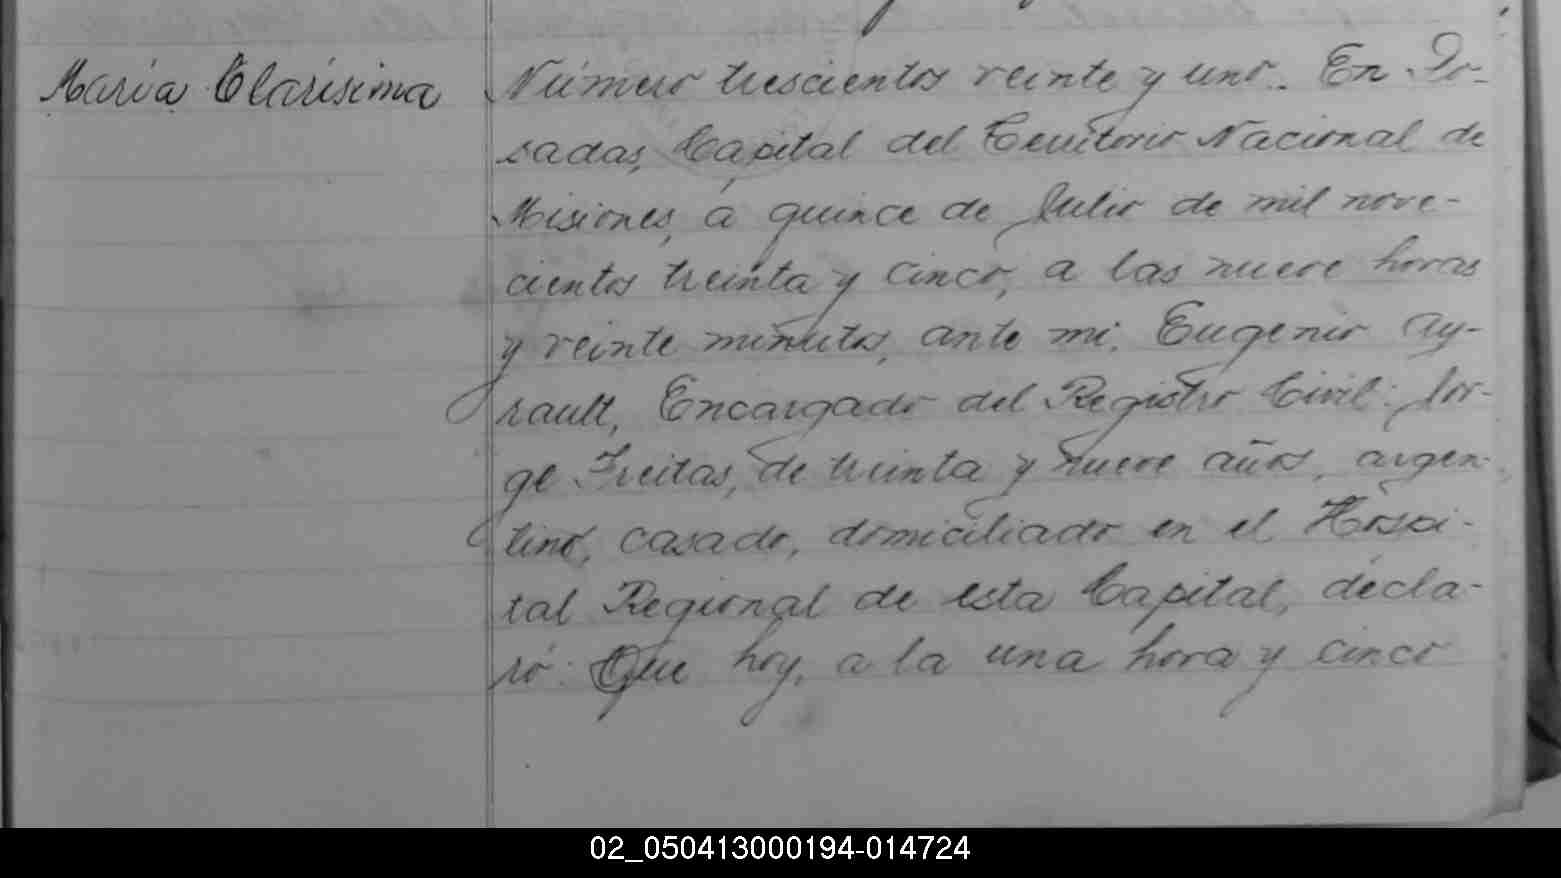 María Clarisima
Número trescientos veinte y uno. En Po-
sadas, Capital del Territorio Nacional de
Misiones, á quince de Julio de mil nove-
cientos treinta y cinco, a las nueve horas
y veinte minutos, ante mi, Eugenio Ay-
rault, Encargado del Registro Civil: Jor-
ge Freitas, de treinta y nueve años, argen-
tino, casado, domiciliado en el Hospi-
tal Regional de esta Capital, decla-
ró: Que hoy, a la una hora y cinco
02_050413000194-014724